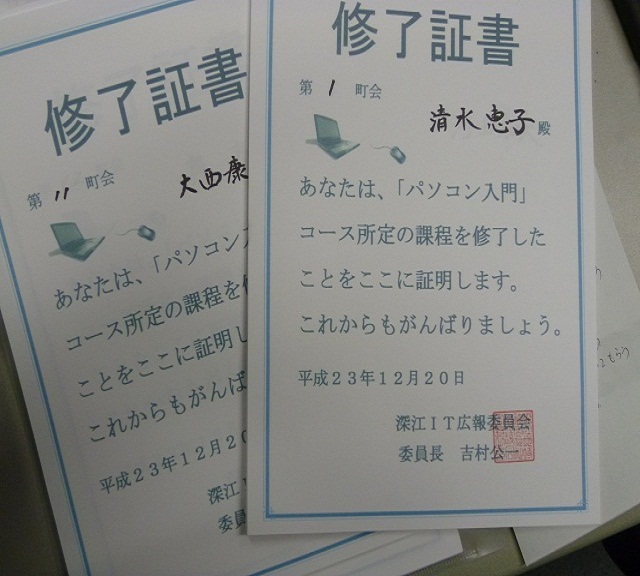 修了証書
第 1 町会
清水恵子 殿
あなたは、「パソコン入門」
コース所定の課程を修了した
ことをここに証明します。
これからもがんばりましょう。
平成23年12月20日
深江IT広報委員会
委員長 吉村公一
修了証書
第 11 町会
大西康
あなたは、「パソコン入
コース所定の課程を修
ことをここに証明し
これからもがんば
平成23年12月20
深江I
委員